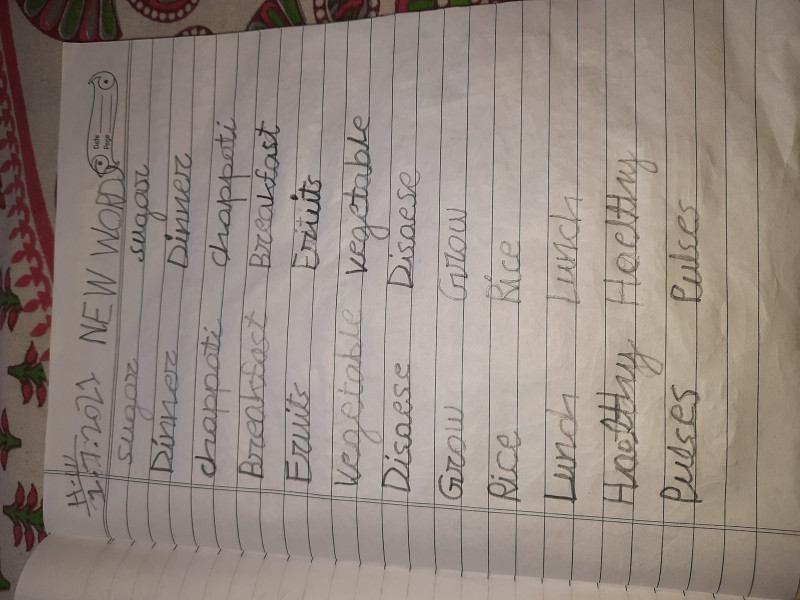 H.W
1.7.2021 NEW WORDS
Date
Page
sugar sugar
Dinner Dinner
chappati chappati
Breakfast Breakfast
Fruits Fruits
Vegetable vegetable
Disaese Disaese
Grow Grow
Rice Rice
Lunch Lunch
Haelthy Haelthy
Pulses Pulses